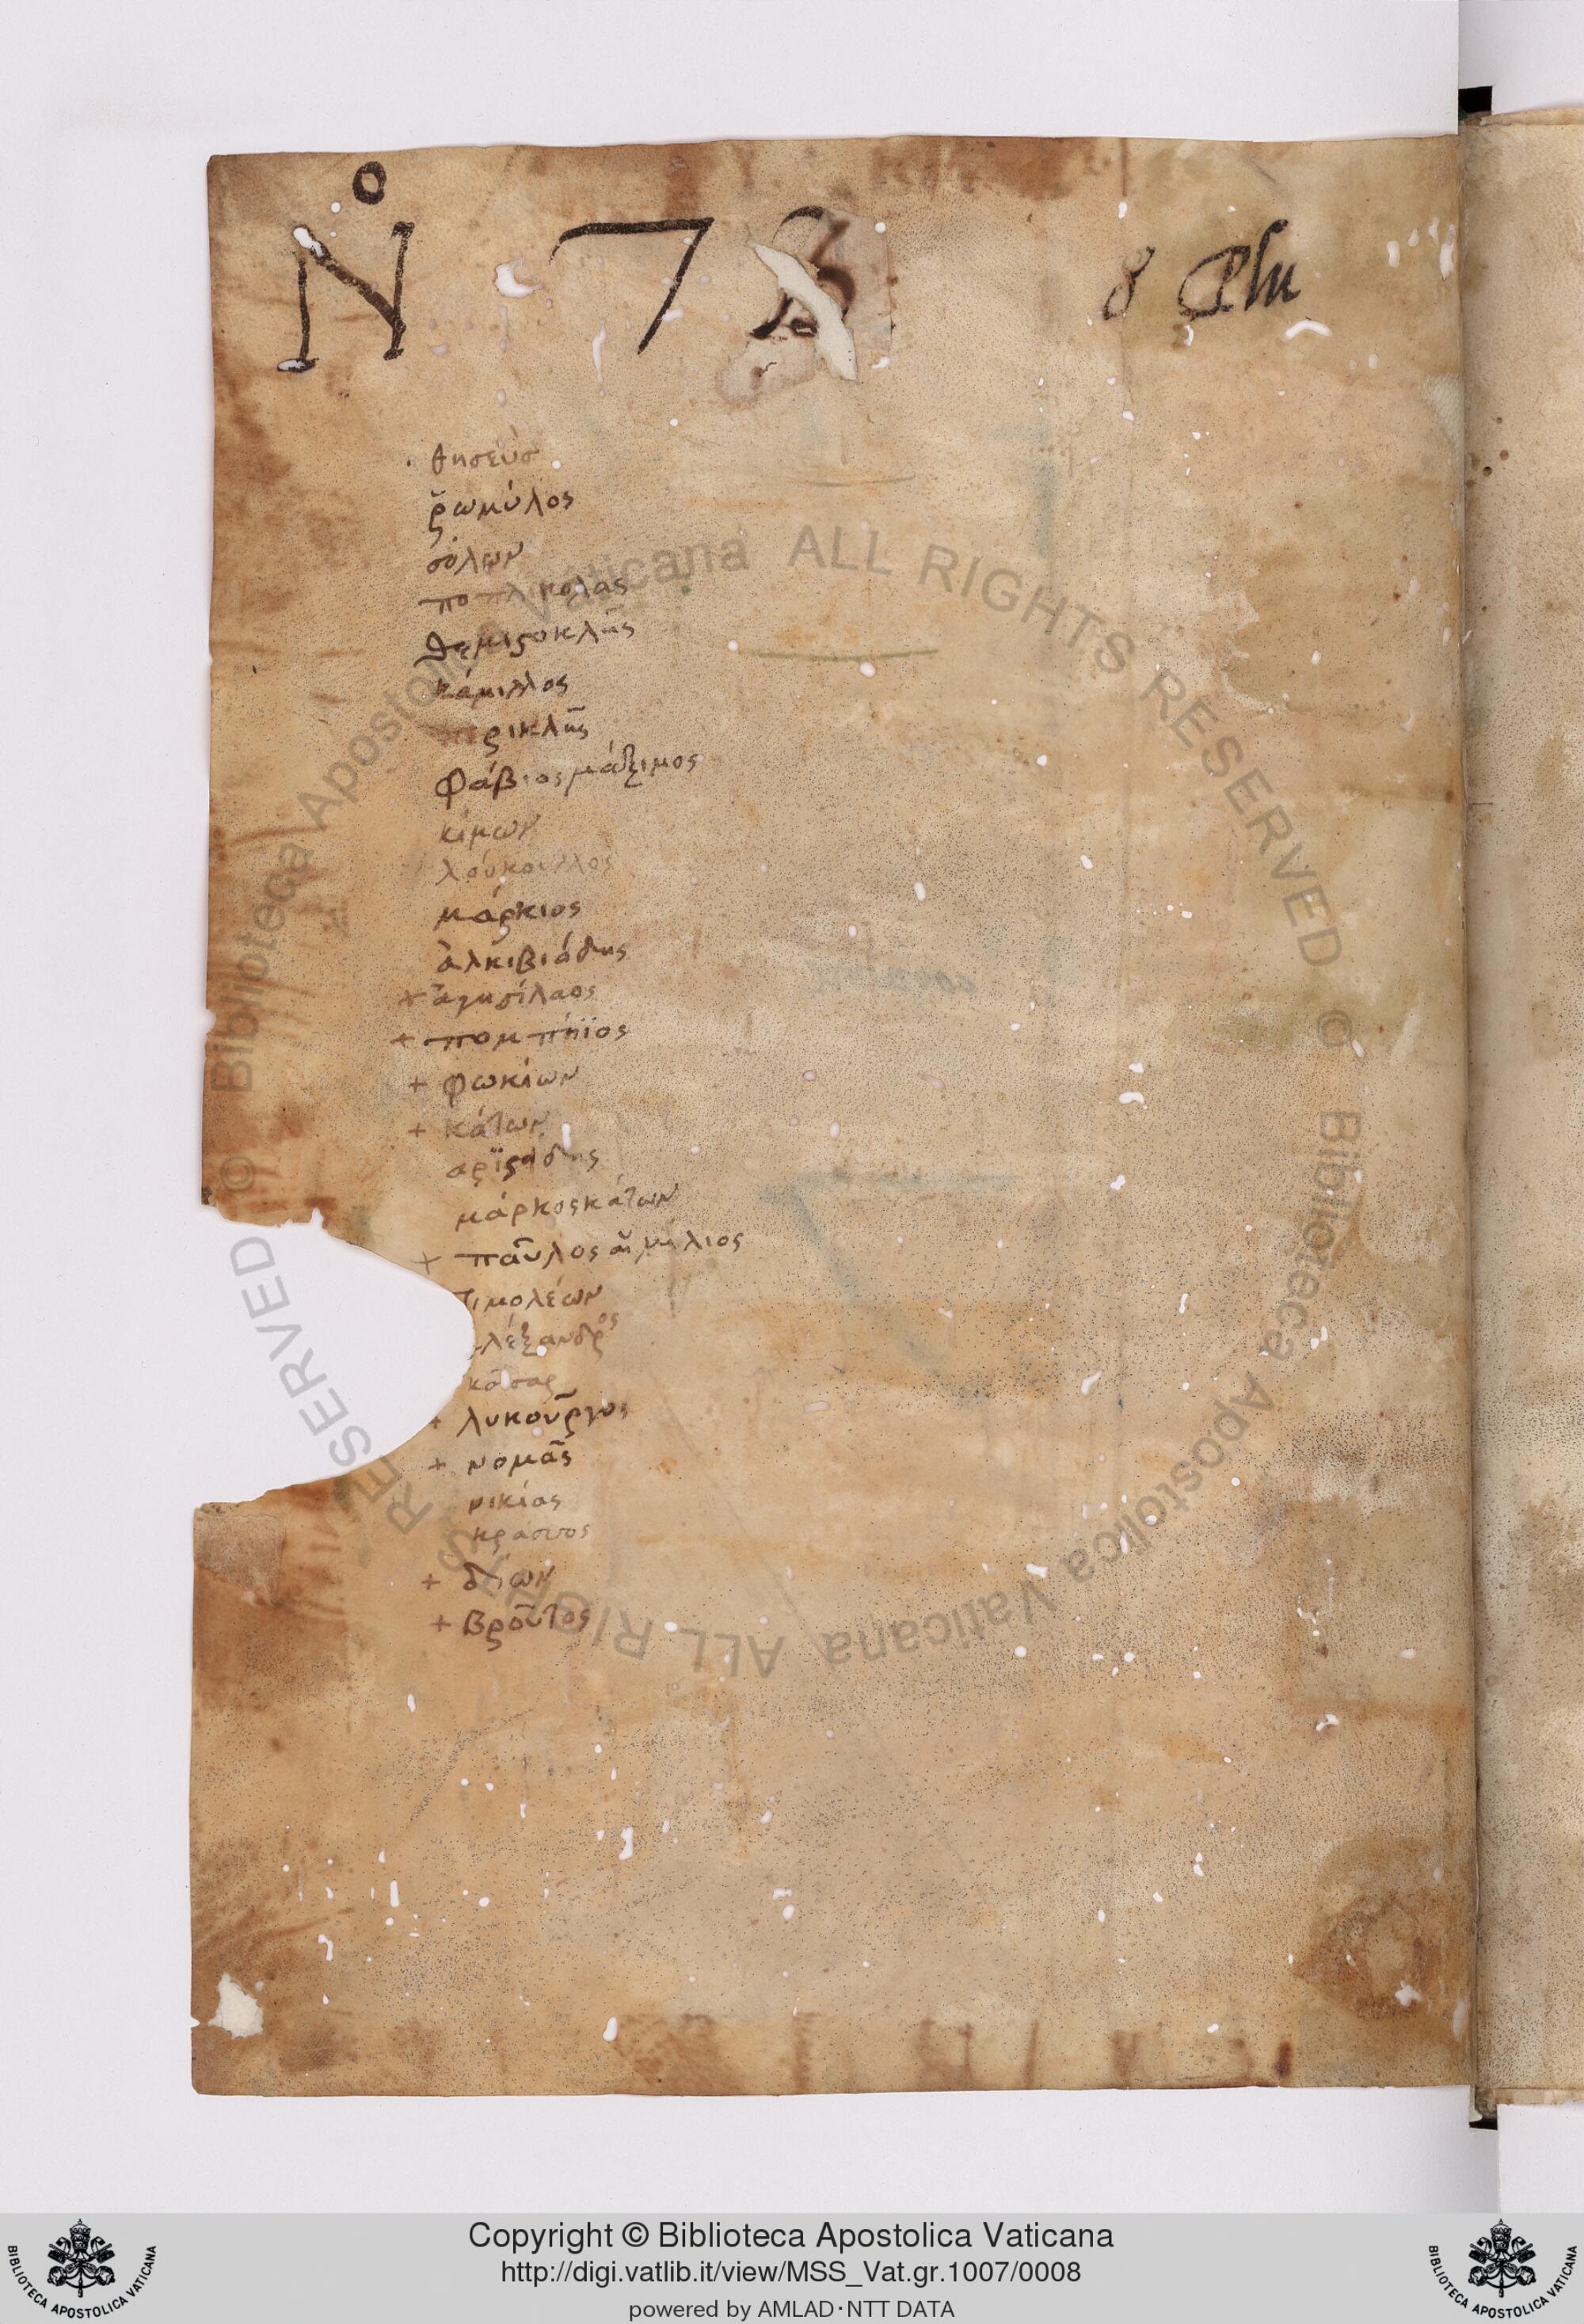 N° 73 8 Plu
θησεύσ
ῥωμύλος
σόλων
ποπλικολας
θεμιστοκλῆς
κάμιλλος
ρικλῆς
Φάβιος μάξιμος
κίμων
λούκουλλος
μάρκιος
ἀλκιβιάδης
+ ἀγησίλαος
+ πομπήϊος
+ φωκίων
+ κάτων
αρϊστάδης
μάρκος κάτων
+ παῦλος αἰμήλιος
τιμολέων
λέξανδρος
καῖσαρ
+ λυκοῦργος
+ νομᾶς
νικίας
κράσσος
+ δίων
+ βροῦτος
© Biblioteca Apostolica Vaticana ALL RIGHTS RESERVED
© Biblioteca Apostolica Vaticana ALL RIGHTS RESERVED
Copyright © Biblioteca Apostolica Vaticana
http://digi.vatlib.it/view/MSS_Vat.gr.1007/0008
powered by AMLAD·NTT DATA
BIBLIOTECA APOSTOLICA VATICANA
BIBLIOTECA APOSTOLICA VATICANA